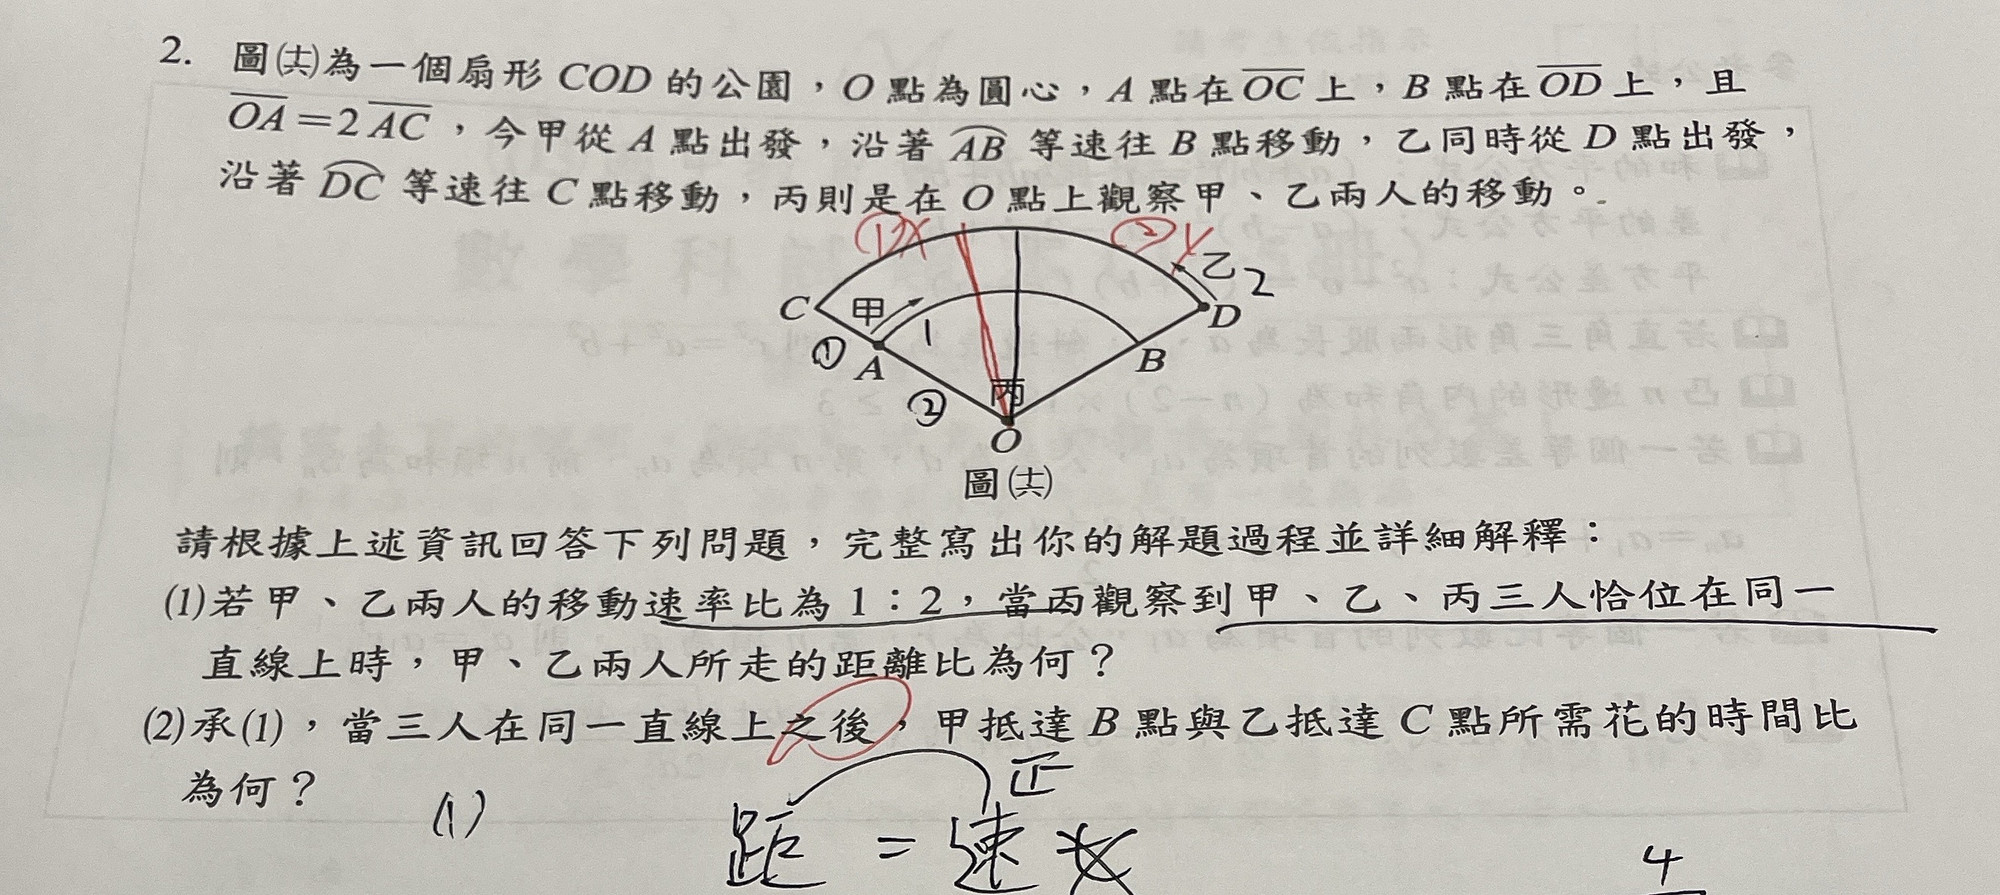 2. 圖(十六)為一個扇形 COD 的公園，O 點為圓心，A 點在 OC 上，B 點在 OD 上，且
OA＝2AC，今甲從 A 點出發，沿著 AB 等速往 B 點移動，乙同時從 D 點出發，
沿著 DC 等速往 C 點移動，丙則是在 O 點上觀察甲、乙兩人的移動。
① X ② X
乙 2
C 甲 1 D
① A B
② 丙
O
圖(十六)
請根據上述資訊回答下列問題，完整寫出你的解題過程並詳細解釋：
(1)若甲、乙兩人的移動速率比為 1：2，當丙觀察到甲、乙、丙三人恰位在同一
直線上時，甲、乙兩人所走的距離比為何？
(2)承(1)，當三人在同一直線上之後，甲抵達 B 點與乙抵達 C 點所需花的時間比
為何？
(1) 正
距 = 速
4